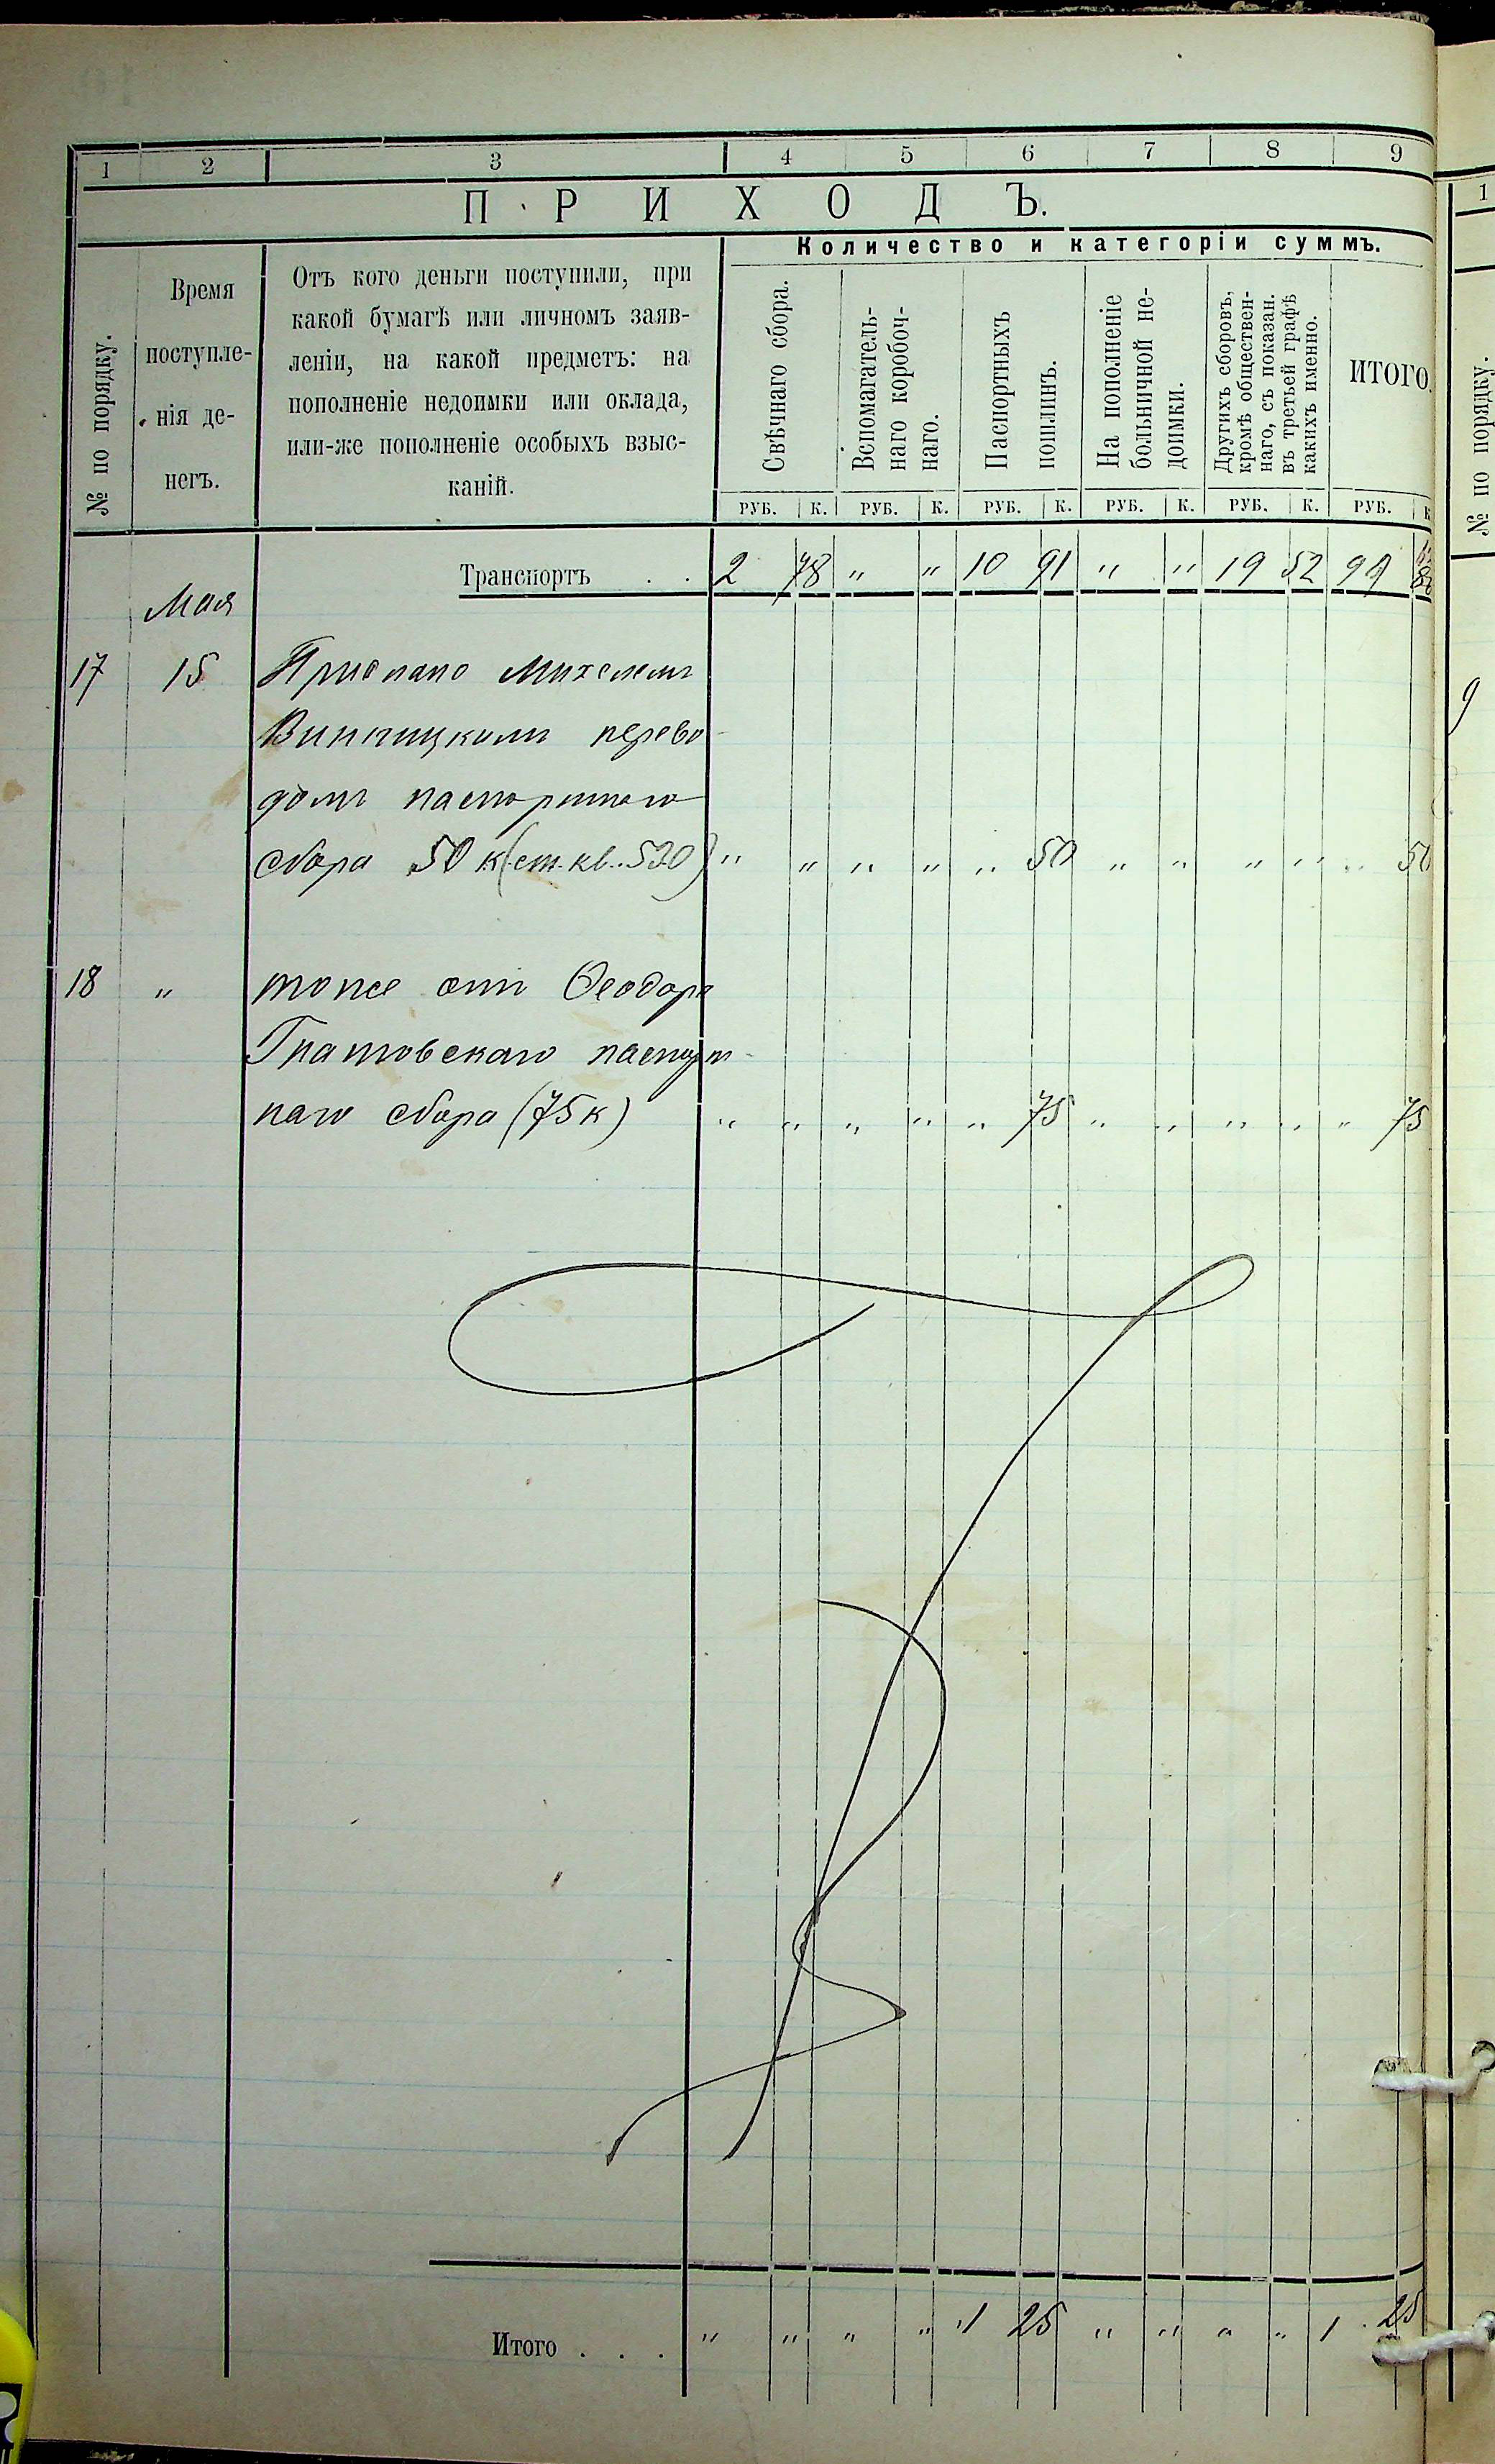 1 2 3 4 5 6 7 8 9
ПРИХОДЪ.
Количество и категоріи суммъ.
№ по порядку.
Время
поступле-
нія де-
негъ.
Отъ кого деньги поступили, при
какой бумагѣ или личномъ заяв-
леніи, на какой предметъ: на
пополненіе недоимки или оклада,
или-же пополненіе особыхъ взыс-
каній.
Свѣчнаго сбора.
Вспомагатель-
наго коробоч-
наго.
Паспортныхъ
пошлинъ.
На пополненіе
больничной не-
доимки.
Другихъ сборовъ,
кромѣ обществен-
наго, съ показан.
въ третьей графѣ
какихъ именно.
ИТОГО.
РУБ. К. РУБ. К. РУБ. К. РУБ. К. РУБ. К. РУБ. К
Транспортъ . . 2 78 " " 10 91 " " 19 52
Мая
17 15 Прислано
Винницкимъ перево
домъ паспортнаго
сбора 50 к (ст. кв. 520) " " " " " 50 " " " " " 50
18 " тоже отъ Ѳеодора
паспорт
наго сбора (75 к) " " " " " 75 " " " " " 75
Итого . . . " " " " 1 25 " " " " 1 25
1
№ по порядку.
9